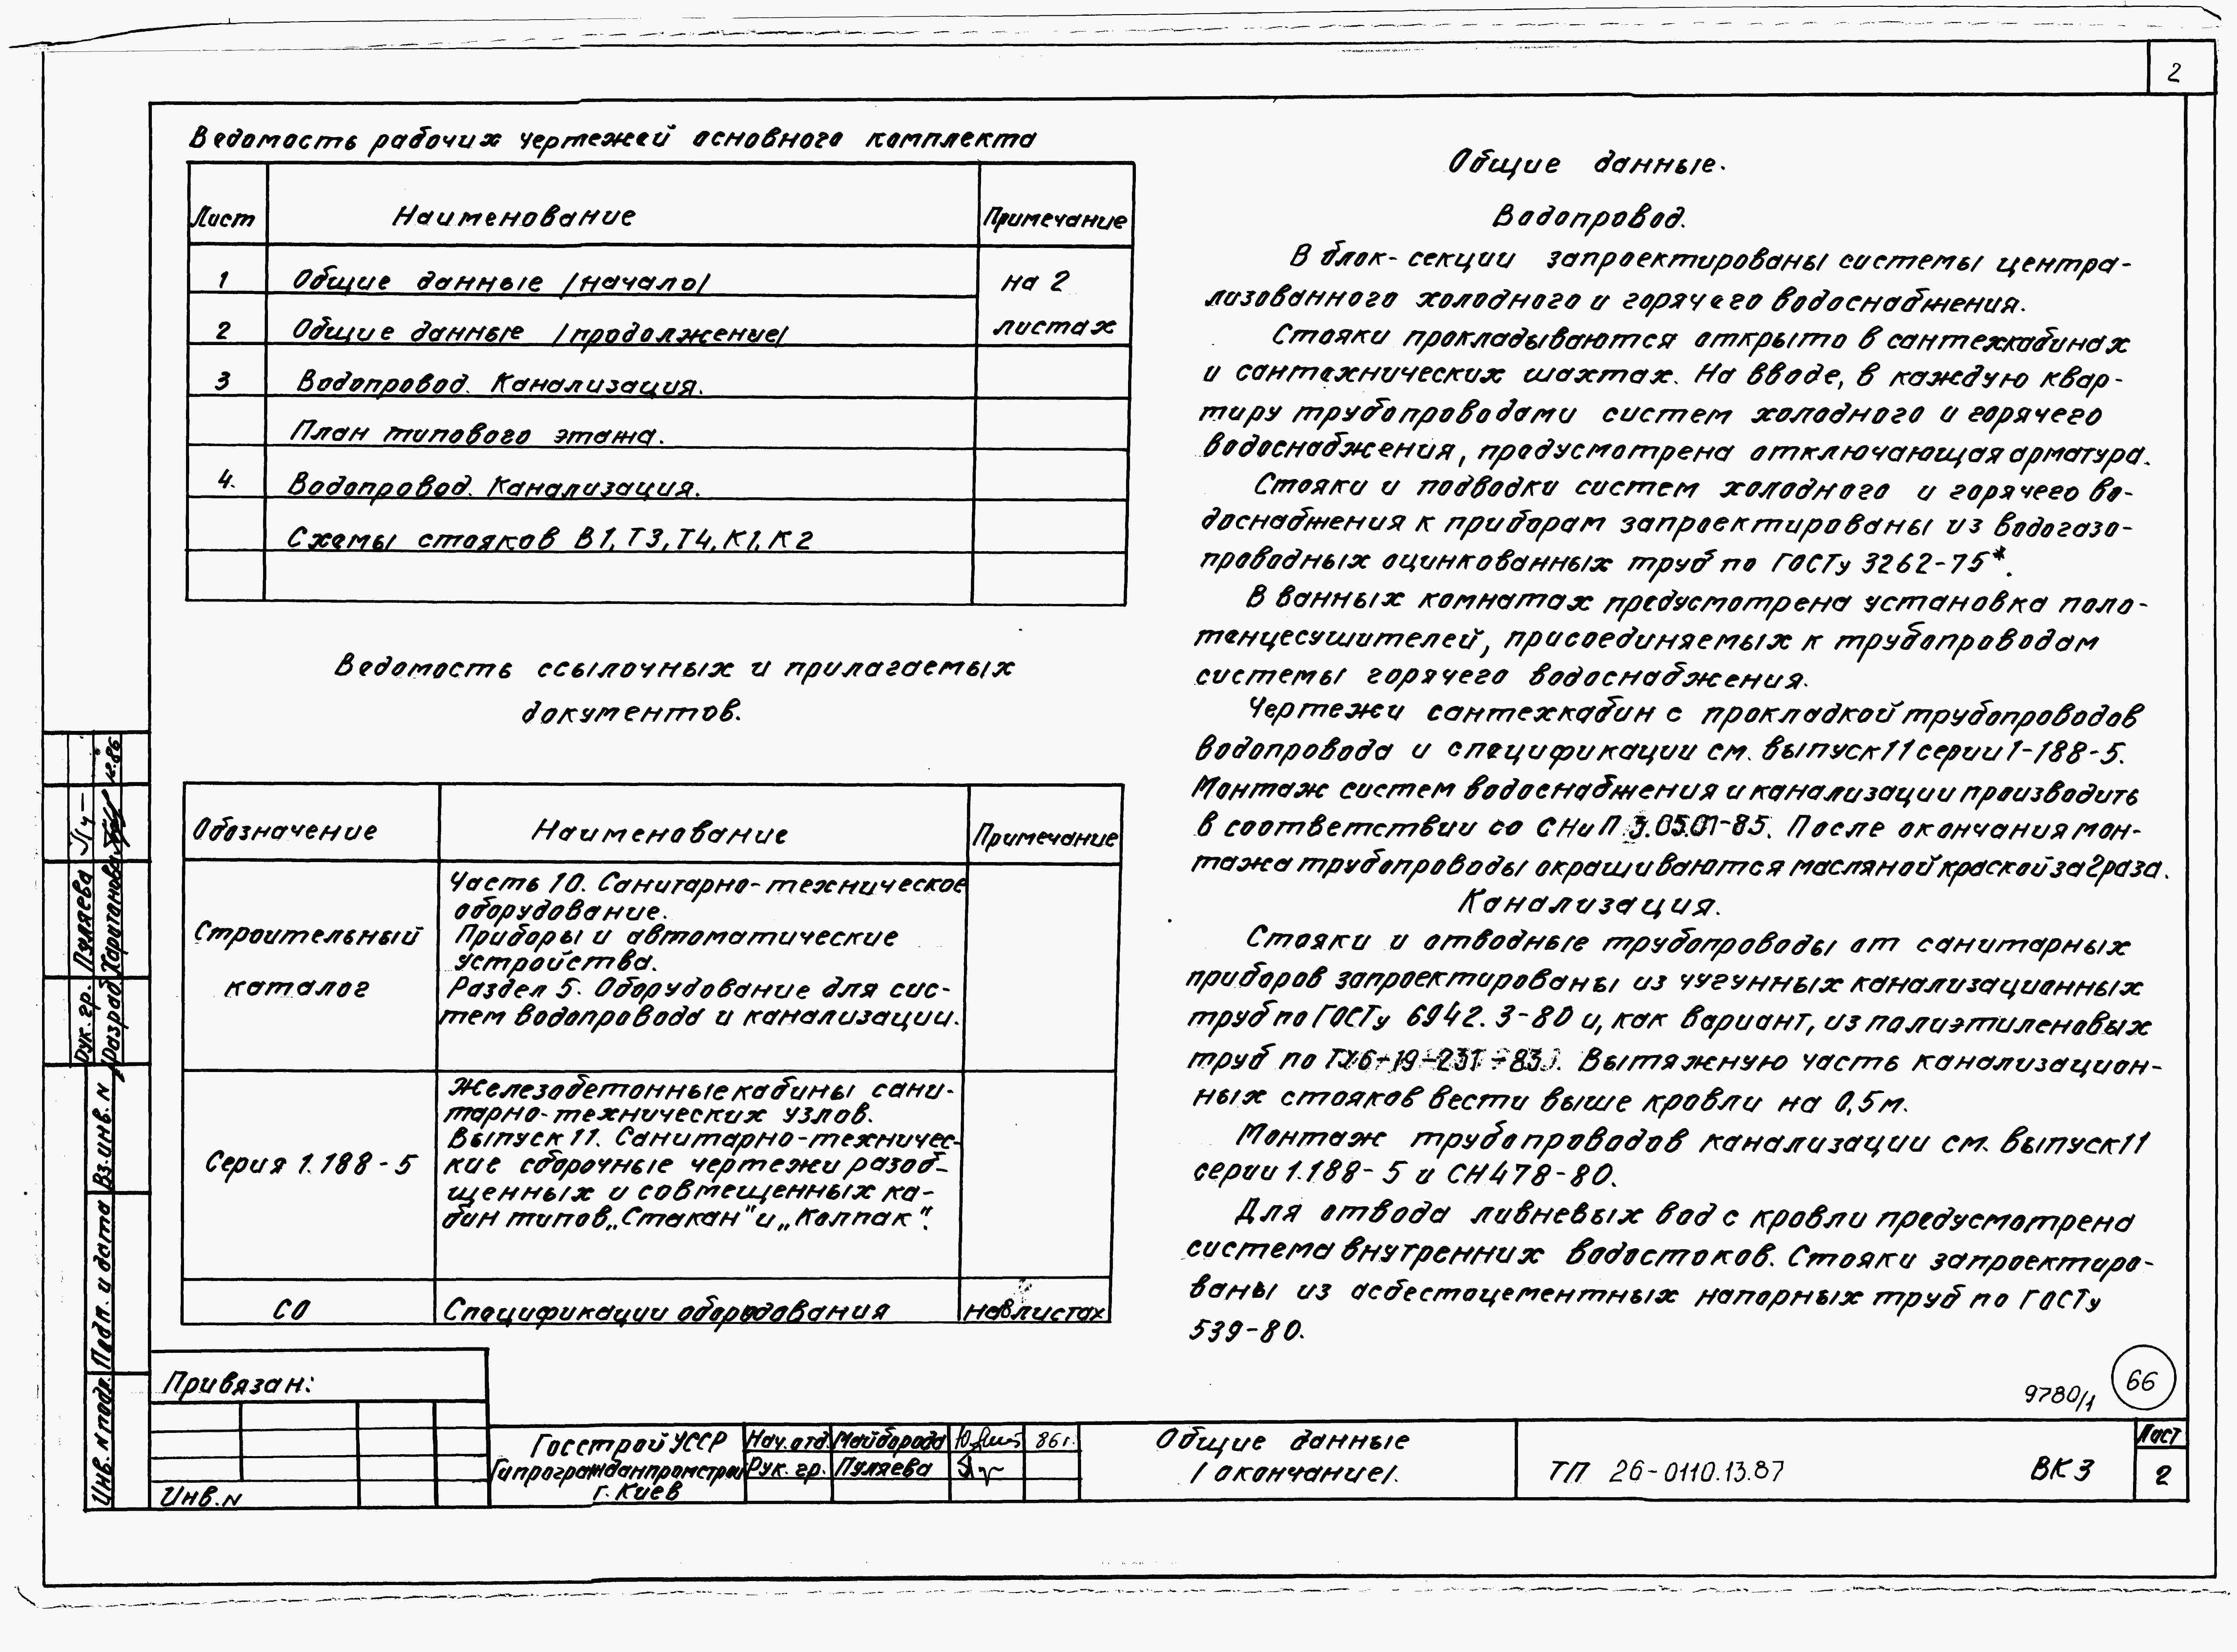 2
Ведомость рабочих чертежей основного комплекта
Лист Наименование Примечание
1 Общие данные /начало/ на 2
2 Общие данные /продолжение/ листах
3 Водопровод. Канализация.
План типового этажа.
4. Водопровод. Канализация.
Схемы стояков В1, Т3, Т4, К1, К2
Ведомость ссылочных и прилагаемых
документов.
Обозначение Наименование Примечание
Строительный
каталог
Часть 10. Санитарно-техническое
оборудование.
Приборы и автоматические
устройства.
Раздел 5. Оборудование для сис-
тем водопровода и канализации.
Серия 1.188-5
Железобетонные кабины сани-
тарно-технических узлов.
Выпуск 11. Санитарно-техничес-
кие сборочные чертежи разоб-
щенных и совмещенных ка-
бин типов „Стакан" и „Колпак".
СО Спецификации оборудования листах
Общие данные.
Водопровод.
В блок-секции запроектированы системы центра-
лизованного холодного и горячего водоснабжения.
Стояки прокладываются открыто в сантехкабинах
и сантехнических шахтах. На вводе, в каждую квар-
тиру трубопроводами систем холодного и горячего
водоснабжения, предусмотрена отключающая арматура.
Стояки и подводки систем холодного и горячего во-
доснабжения к приборам запроектированы из водогазо-
проводных оцинкованных труб по ГОСТу 3262-75*.
В ванных комнатах предусмотрена установка поло-
тенцесушителей, присоединяемых к трубопроводам
системы горячего водоснабжения.
Чертежи сантехкабин с прокладкой трубопроводов
водопровода и спецификации см. выпуск 11 серии 1-188-5.
Монтаж систем водоснабжения и канализации производить
в соответствии со СНиП 3.05.01-85. После окончания мон-
тажа трубопроводы окрашиваются масляной краской за 2 раза.
Канализация.
Стояки и отводные трубопроводы от санитарных
приборов запроектированы из чугунных канализационных
труб по ГОСТу 6942.3-80 и, как вариант, из полиэтиленовых
труб по ТУ6-19-231-83. Вытяжную часть канализацион-
ных стояков вести выше кровли на 0,5м.
Монтаж трубопроводов канализации см. выпуск 11
серии 1.188-5 и СН478-80.
Для отвода ливневых вод с кровли предусмотрена
система внутренних водостоков. Стояки запроектиро-
ваны из асбестоцементных напорных труб по ГОСТу
539-80.
9780/1 66
Рук. гр. Пуляева
Разраб. Харитонова 12.86
Вз. инв. N
Подп. и дата
Инв. N подл.
Привязан:
Инв. N
Госстрой УССР
Гипрогражданпромстрой
г. Киев
Нач. отд. Майборода 86г.
Рук. гр. Пуляева
Общие данные
/окончание/.
ТП 26-0110.13.87 ВК3
Лист
2